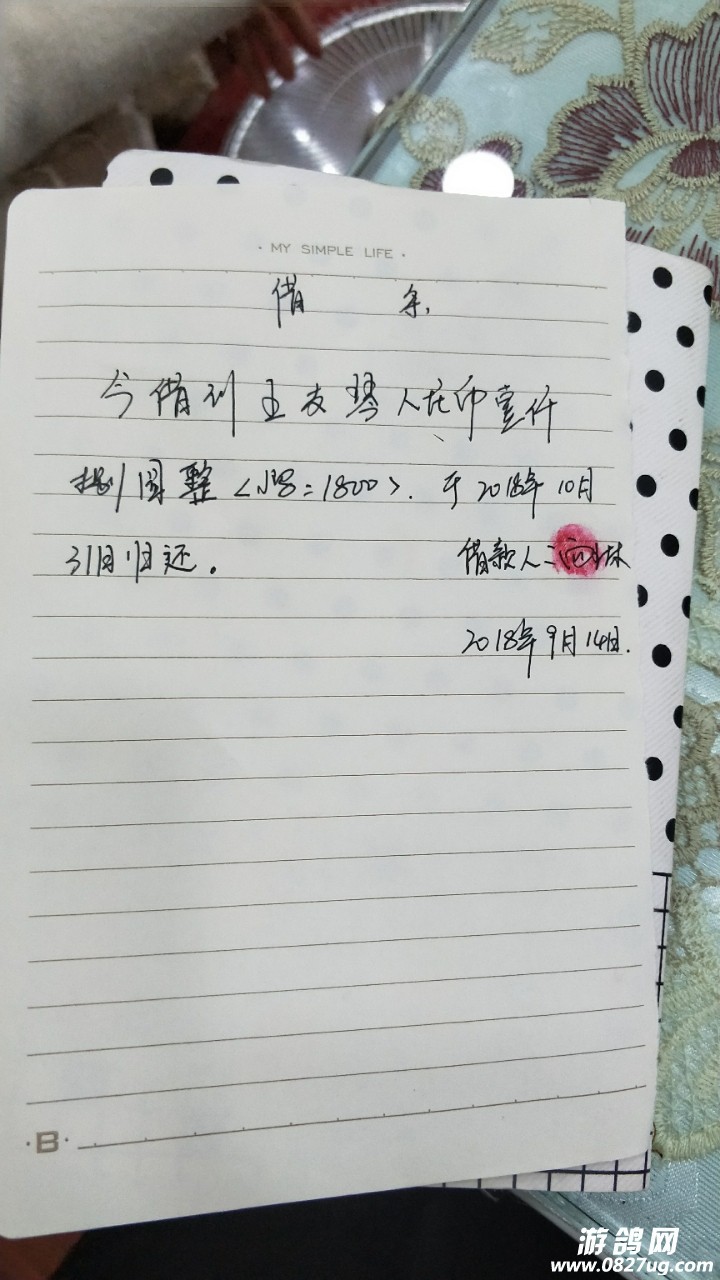 · MY SIMPLE LIFE ·
借 条
今借到王友琴人民币壹仟
捌圆整<小写:1800>. 于2018年10月
31日归还。
借款人:
2018年9月14日.
·B·
游鸽网
www.0827ug.com